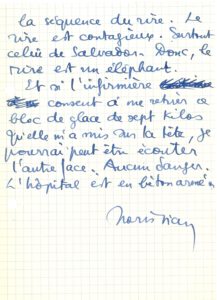 la séquence du rire. Le
rire est contagieux. Surtout
celui de Salvador. Donc, le
rire est un éléphant.
Et si l'infirmière
consent à me retirer ce
bloc de glace de sept kilos
qu'elle m'a mis sur la tête, je
pourrai peut être écouter
l'autre face. Aucun danger.
L'hôpital est en béton armé.
Boris Vian